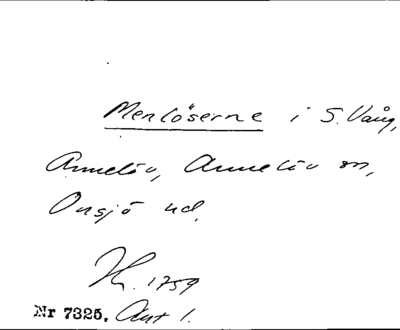 Menlöserne i S. Vång,
Annelöv, Annelöv sn,
Onsjö hd.
1759
Nr 7325. Avt 1.